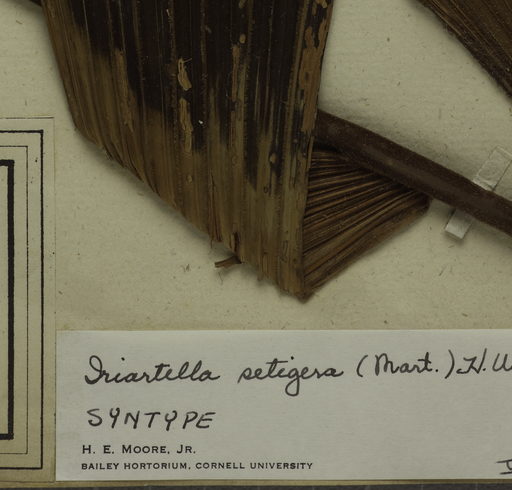 Iriartella setigera (Mart.) H. W
SYNTYPE
H. E. MOORE, JR.
BAILEY HORTORIUM, CORNELL UNIVERSITY